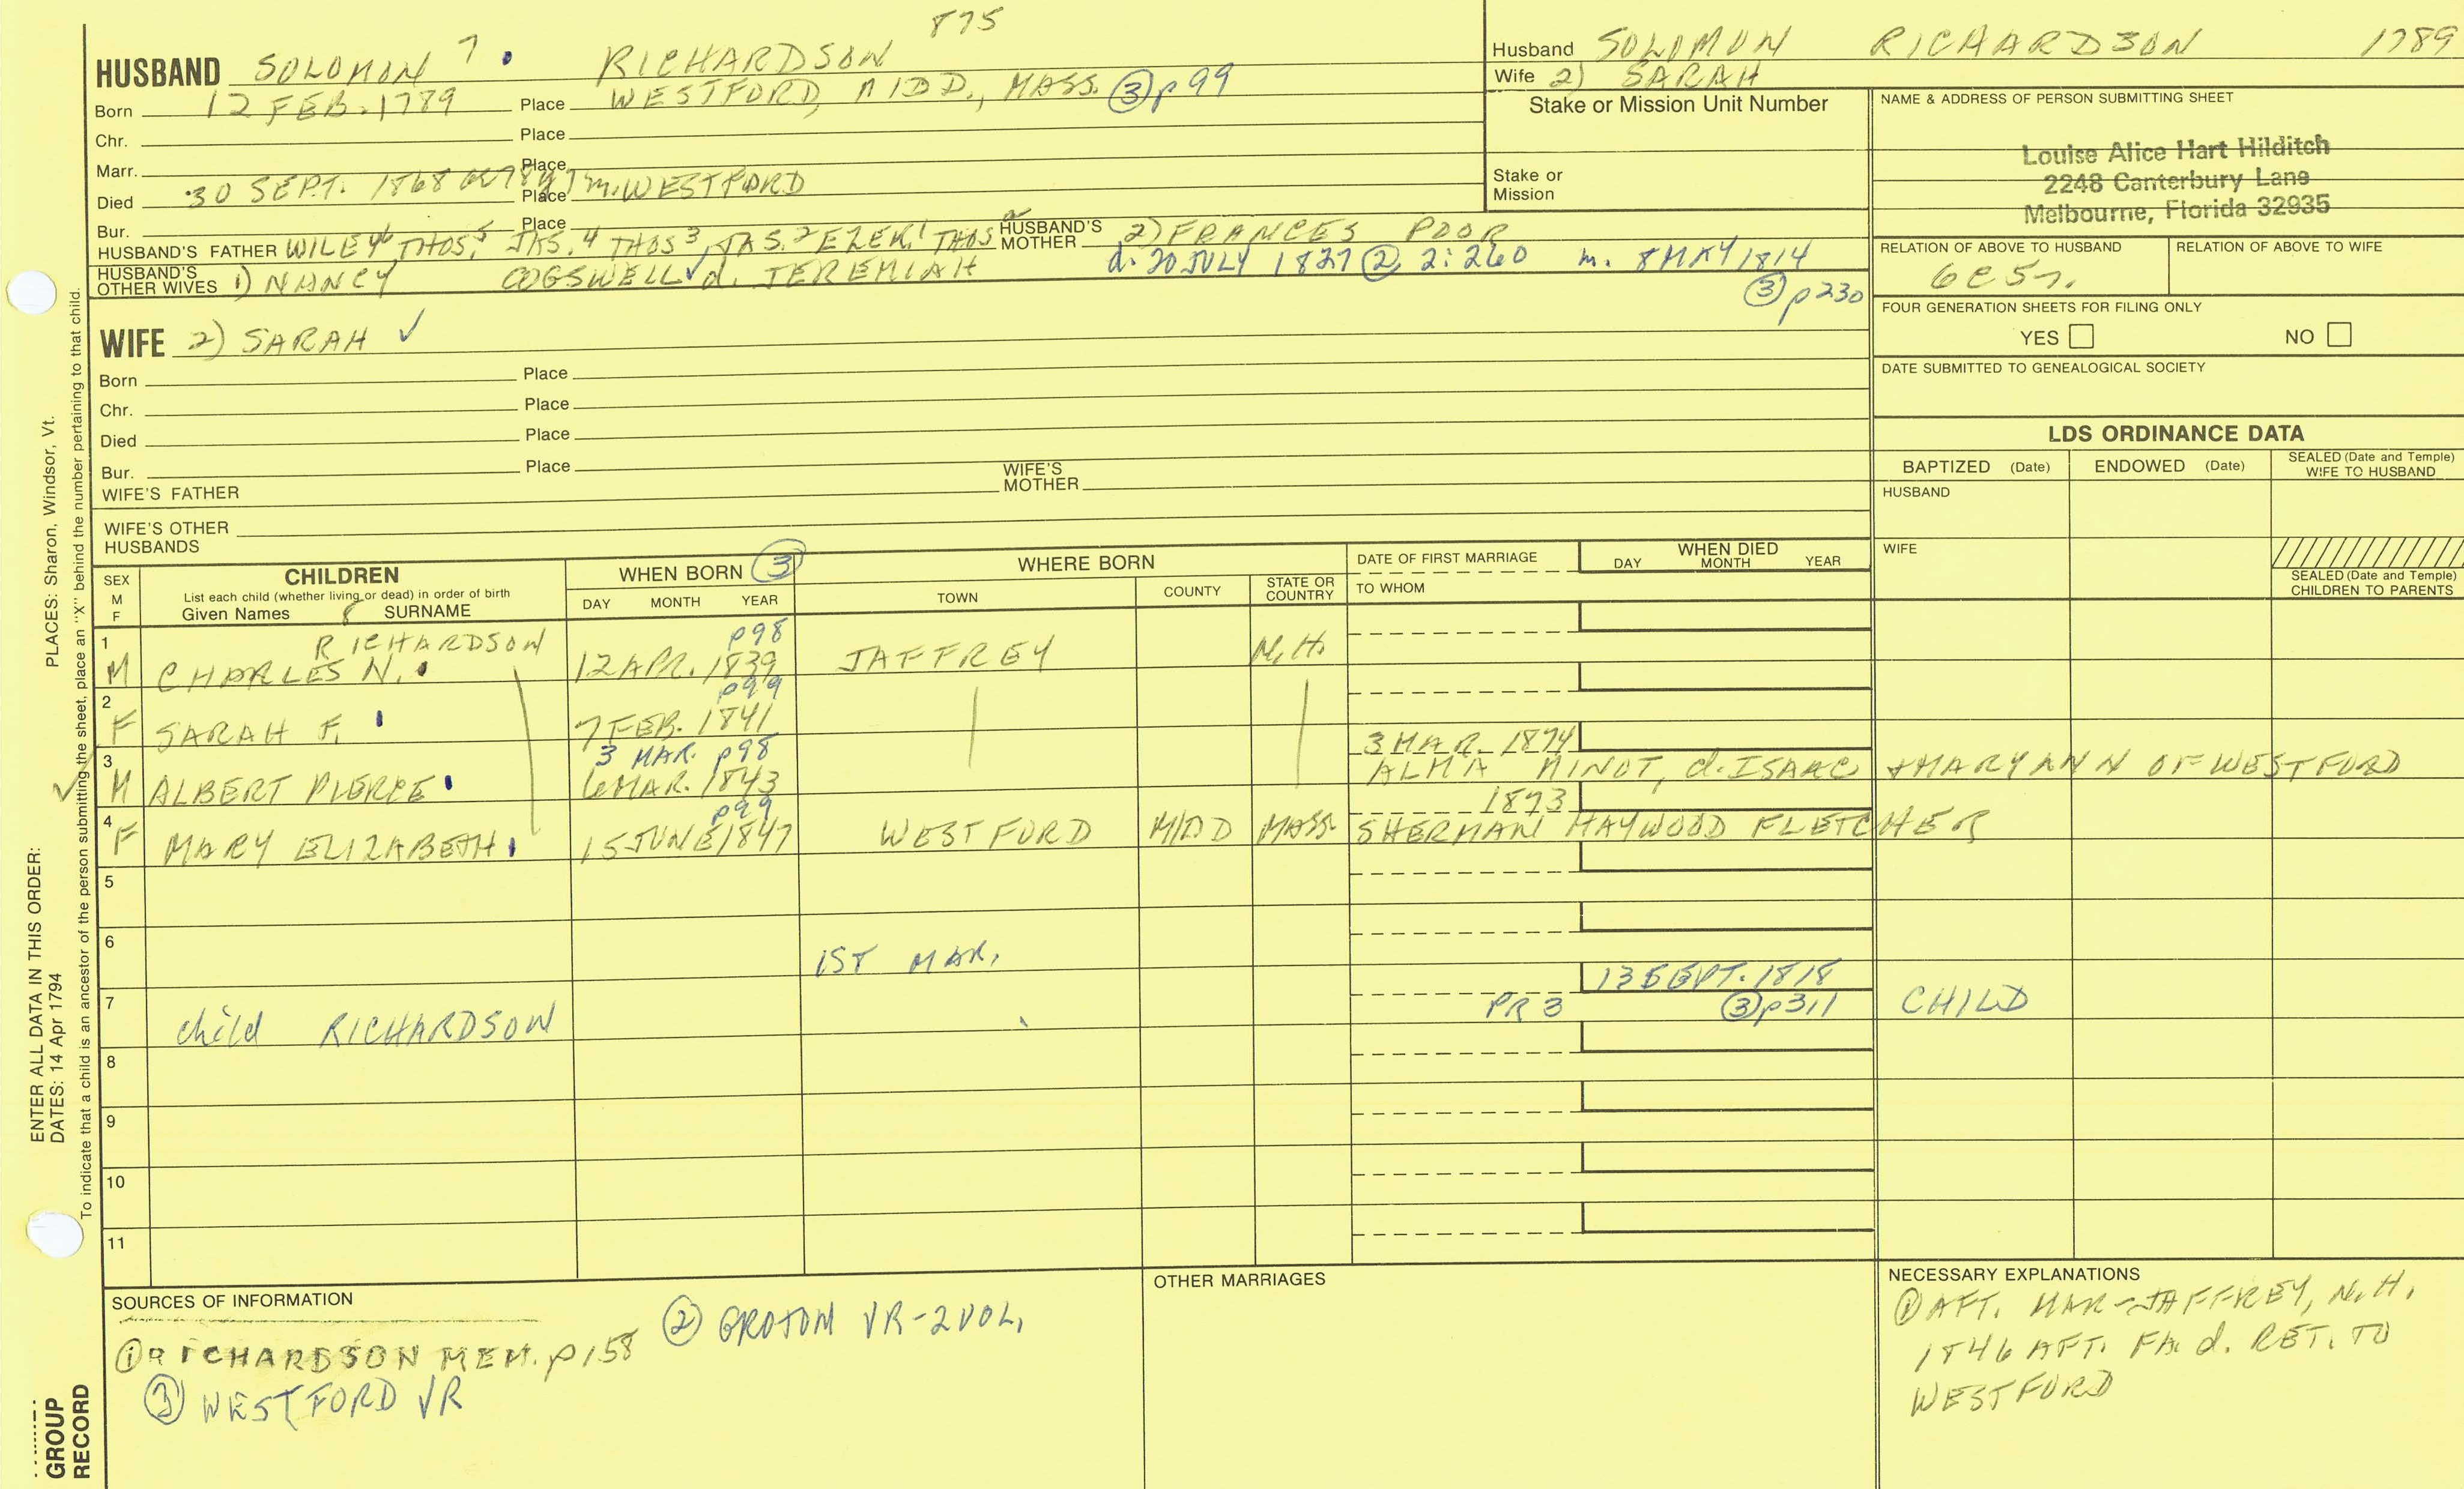 875
HUSBAND SOLOMON 7. RICHARDSON
Born 12 FEB. 1789 Place WESTFORD, MIDD., MASS. ③ p99
Chr. Place
Marr. Place
Died 30 SEPT. 1868 Place m. WESTFORD
Bur. Place
HUSBAND'S FATHER WILEY6 THOS,5 JAS.4 THOS3, JAS.2 EZEK.1 THOS HUSBAND'S MOTHER 2) FRANCES POOR
HUSBAND'S OTHER WIVES 1) NANCY COGSWELL ✓ d. JEREMIAH d. 20 JULY 1827 ② 2:260 m. 8 MAY 1814
③ p230
WIFE 2) SARAH ✓
Born Place
Chr. Place
Died Place
Bur. Place
WIFE'S FATHER WIFE'S MOTHER
WIFE'S OTHER HUSBANDS
Husband SOLOMON RICHARDSON 1789
Wife 2) SARAH
Stake or Mission Unit Number
Stake or Mission
NAME & ADDRESS OF PERSON SUBMITTING SHEET
Louise Alice Hart Hilditch
2248 Canterbury Lane
Melbourne, Florida 32935
RELATION OF ABOVE TO HUSBAND RELATION OF ABOVE TO WIFE
6C5
FOUR GENERATION SHEETS FOR FILING ONLY
YES NO
DATE SUBMITTED TO GENEALOGICAL SOCIETY
LDS ORDINANCE DATA
BAPTIZED (Date) ENDOWED (Date) SEALED (Date and Temple) WIFE TO HUSBAND
HUSBAND
WIFE
SEALED (Date and Temple) CHILDREN TO PARENTS
SEX M F
CHILDREN
List each child (whether living or dead) in order of birth
Given Names 8 SURNAME
WHEN BORN ③
DAY MONTH YEAR
WHERE BORN
TOWN COUNTY STATE OR COUNTRY
DATE OF FIRST MARRIAGE
TO WHOM
WHEN DIED
DAY MONTH YEAR
1 RICHARDSON p98
M CHARLES N. 12 APR. 1839 JAFFREY N.H.
2 p99
F SARAH F. 7 FEB. 1841
3 3 MAR. p98 3 MAR. 1874
M ALBERT PIERCE 6 MAR. 1843 ALMA MINOT, d. ISAAC + MARY ANN OF WESTFORD
4 p99 1873
F MARY ELIZABETH 15 JUNE 1847 WESTFORD MIDD MASS SHERMAN HAYWOOD FLETCHER
5
6
1ST MAR.
13 SEPT. 1818
7 PR 3 ③ p311 CHILD
child RICHARDSON
8
9
10
11
SOURCES OF INFORMATION
① RICHARDSON MEM. p158
② GROTON VR-2 VOL.
③ WESTFORD VR
OTHER MARRIAGES
NECESSARY EXPLANATIONS
① AFT. MAR-JAFFREY, N.H.
1846 AFT. FA. d. RET. TO
WESTFORD
ENTER ALL DATA IN THIS ORDER:
DATES: 14 Apr 1794
PLACES: Sharon, Windsor, Vt.
To indicate that a child is an ancestor of the person submitting the sheet, place an "X" behind the number pertaining to that child.
GROUP
RECORD